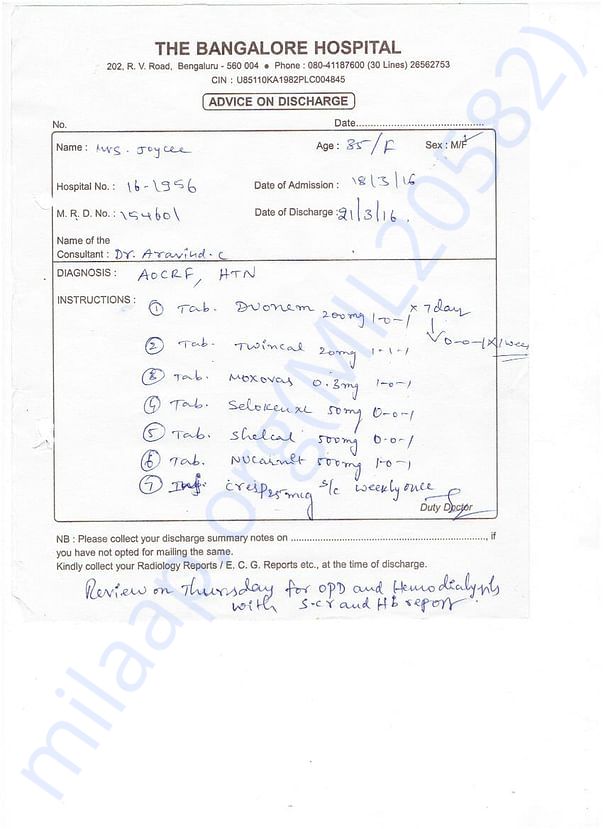 THE BANGALORE HOSPITAL
202, R. V. Road, Bengaluru - 560 004 ● Phone : 080-41187600 (30 Lines) 26562753
CIN : U85110KA1982PLC004845
ADVICE ON DISCHARGE
No. Date............................................
Name : Mrs. Joycee Age : 35/F Sex : M/F
Hospital No. : 16-1956 Date of Admission : 18/3/16
M. R. D. No. : 154601 Date of Discharge : 21/3/16.
Name of the
Consultant : Dr. Aravind.C
DIAGNOSIS : AOCRF, HTN
INSTRUCTIONS : ① Tab. Duonem 200mg 1-0-1 x 7day
↓ 0-0-1 x 1 week
② Tab. Twincal 20mg 1-1-1
③ Tab. Moxovas 0.3mg 1-0-1
④ Tab. Selokenxl 50mg 0-0-1
⑤ Tab. Shelcal 500mg 0-0-1
⑥ Tab. 500mg 1-0-1
⑦ Inj. Cresp 25mcg s/c weekly once
Duty Doctor
NB : Please collect your discharge summary notes on ......................................................................, if
you have not opted for mailing the same.
Kindly collect your Radiology Reports / E. C. G. Reports etc., at the time of discharge.
Review on Thursday for OPD and Hemodialysis
with S.cr and Hb report.
milaap.org(MIL20582)